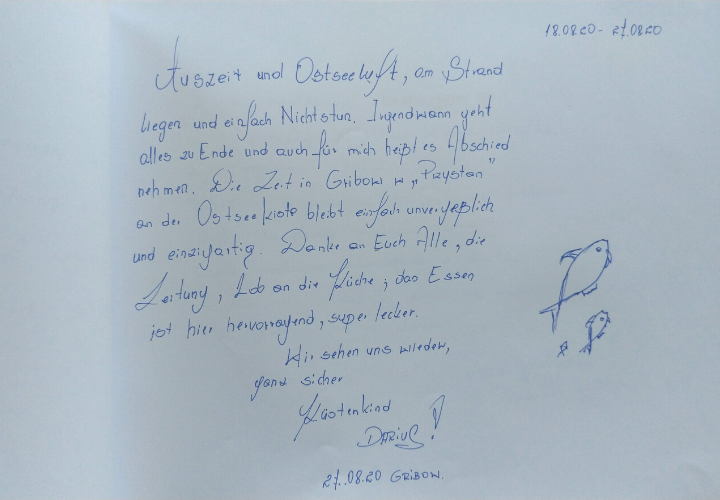 18.08.20 - 27.08.20
Auszeit und Ostseeluft, am Strand
liegen und einfach Nichtstun. Irgendwann geht
alles zu Ende und auch für mich heißt es Abschied
nehmen. Die Zeit in Gribow w „Przystan"
an der Ostseekiste bleibt einfach unvergeßlich
und einzigartig. Danke an Euch Alle, die
Leitung, Lob an die Küche; das Essen
ist hier hervorragend, super lecker.
Wir sehen uns wieder,
ganz sicher
Küstenkind
DARIUS!
27.08.20 GRIBOW.